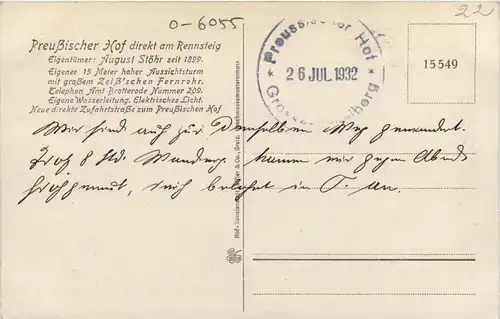 O-6055
22
Preußischer Hof direkt am Rennsteig
Eigentümer: August Stöhr seit 1899.
Eigener 15 Meter hoher Aussichtsturm
mit großem Zeiß'schen Fernrohr.
Telephon Amt Brotterode Nummer 209.
Eigene Wasserleitung. Elektrisches Licht.
Neue direkte Zufahrtstraße zum Preußischen Hof
Preussischer Hof
26 JUL 1932
Grosser
15549
Wir sind auch zur Weg gewandert.
Trotz 8 Std. kamen wir gegen Abend
in T. an.